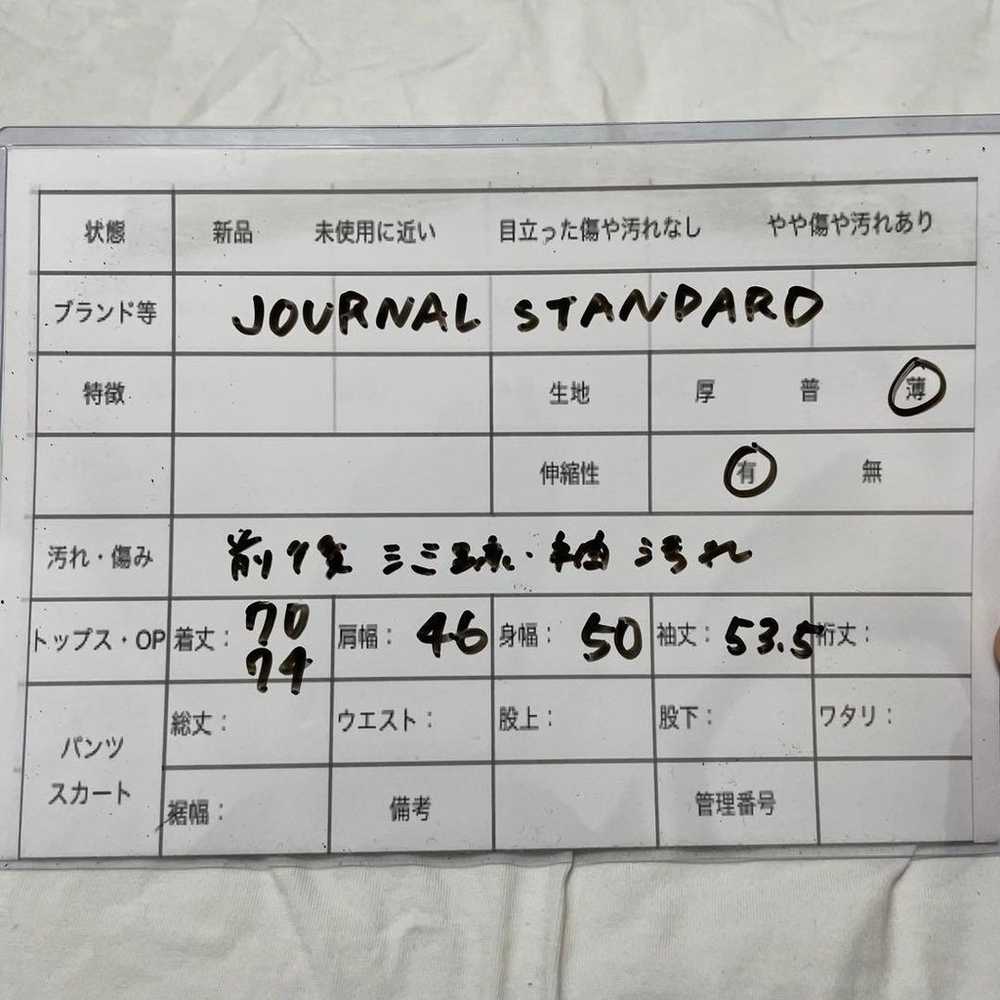 状態 新品 未使用に近い 目立った傷や汚れなし やや傷や汚れあり
ブランド等 JOURNAL STANDARD
特徴 生地 厚 普 薄
伸縮性 有 無
汚れ・傷み 前後 ミミ ・袖 汚れ
トップス・OP 着丈: 70 74 肩幅: 46 身幅: 50 袖丈: 53.5 裄丈:
パンツ スカート
総丈: ウエスト: 股上: 股下: ワタリ:
裾幅: 備考 管理番号